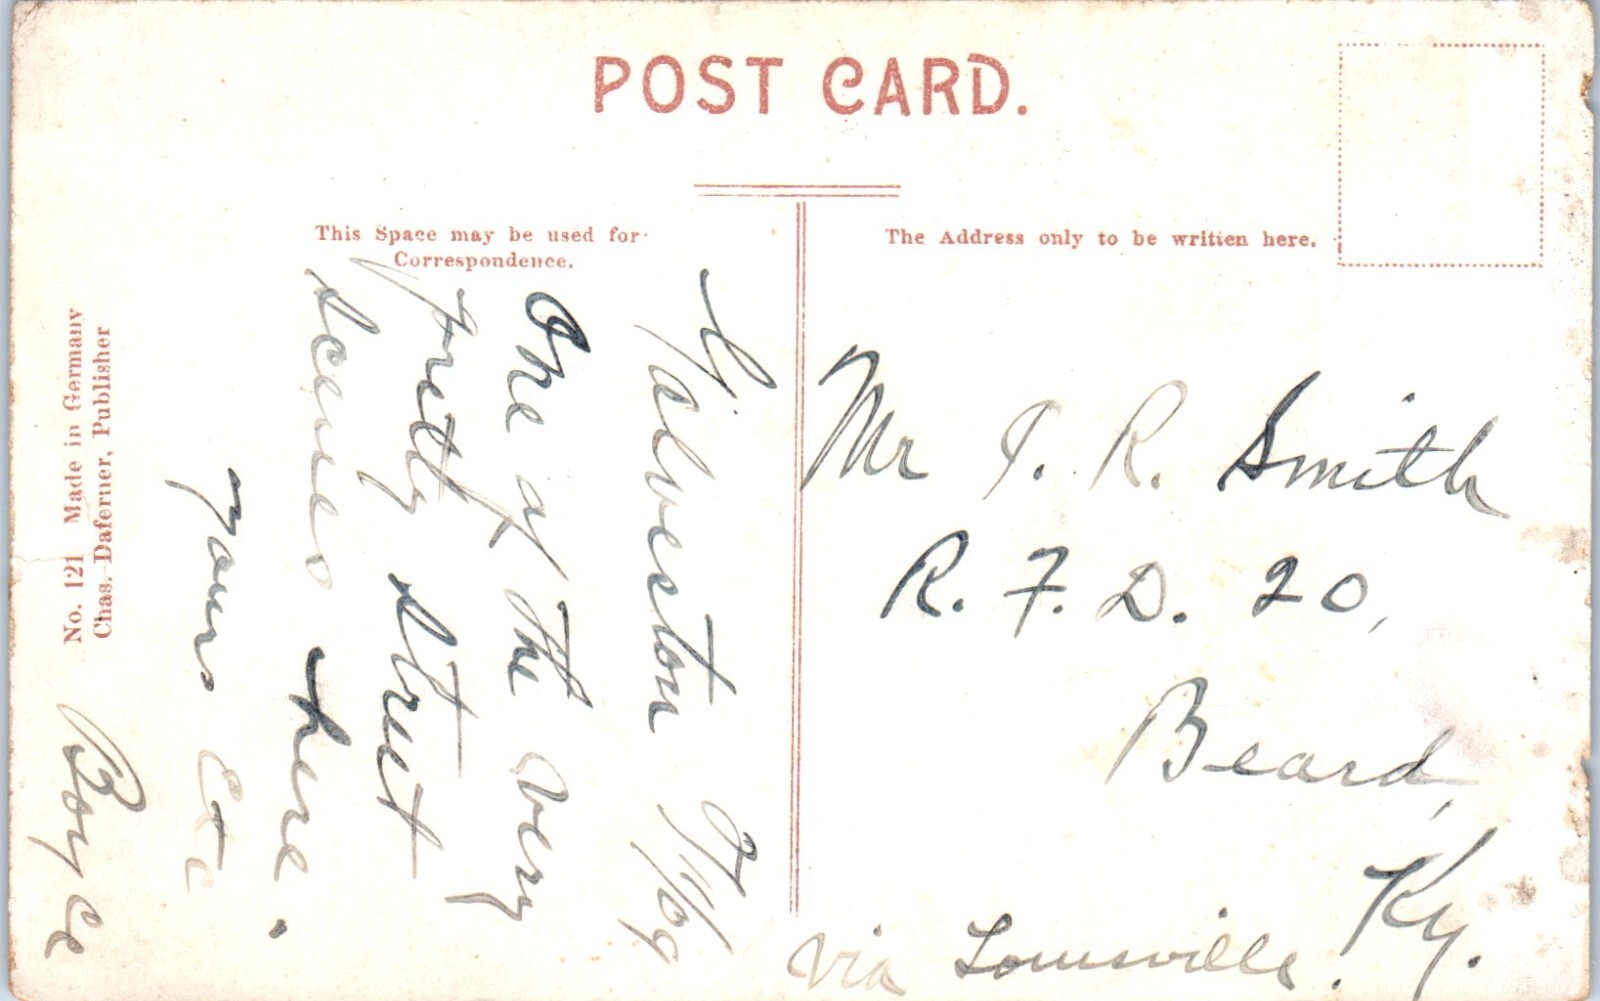 POST CARD.
This Space may be used for
Correspondence.
The Address only to be written here.
No. 121 Made in Germany
Chas. Daferner, Publisher
Galveston
One of the very
pretty street
scenes here.
Yours etc
Boyce
Mr R. Smith
R. F. D. 20,
Beard,
Ky.
via Louisville.